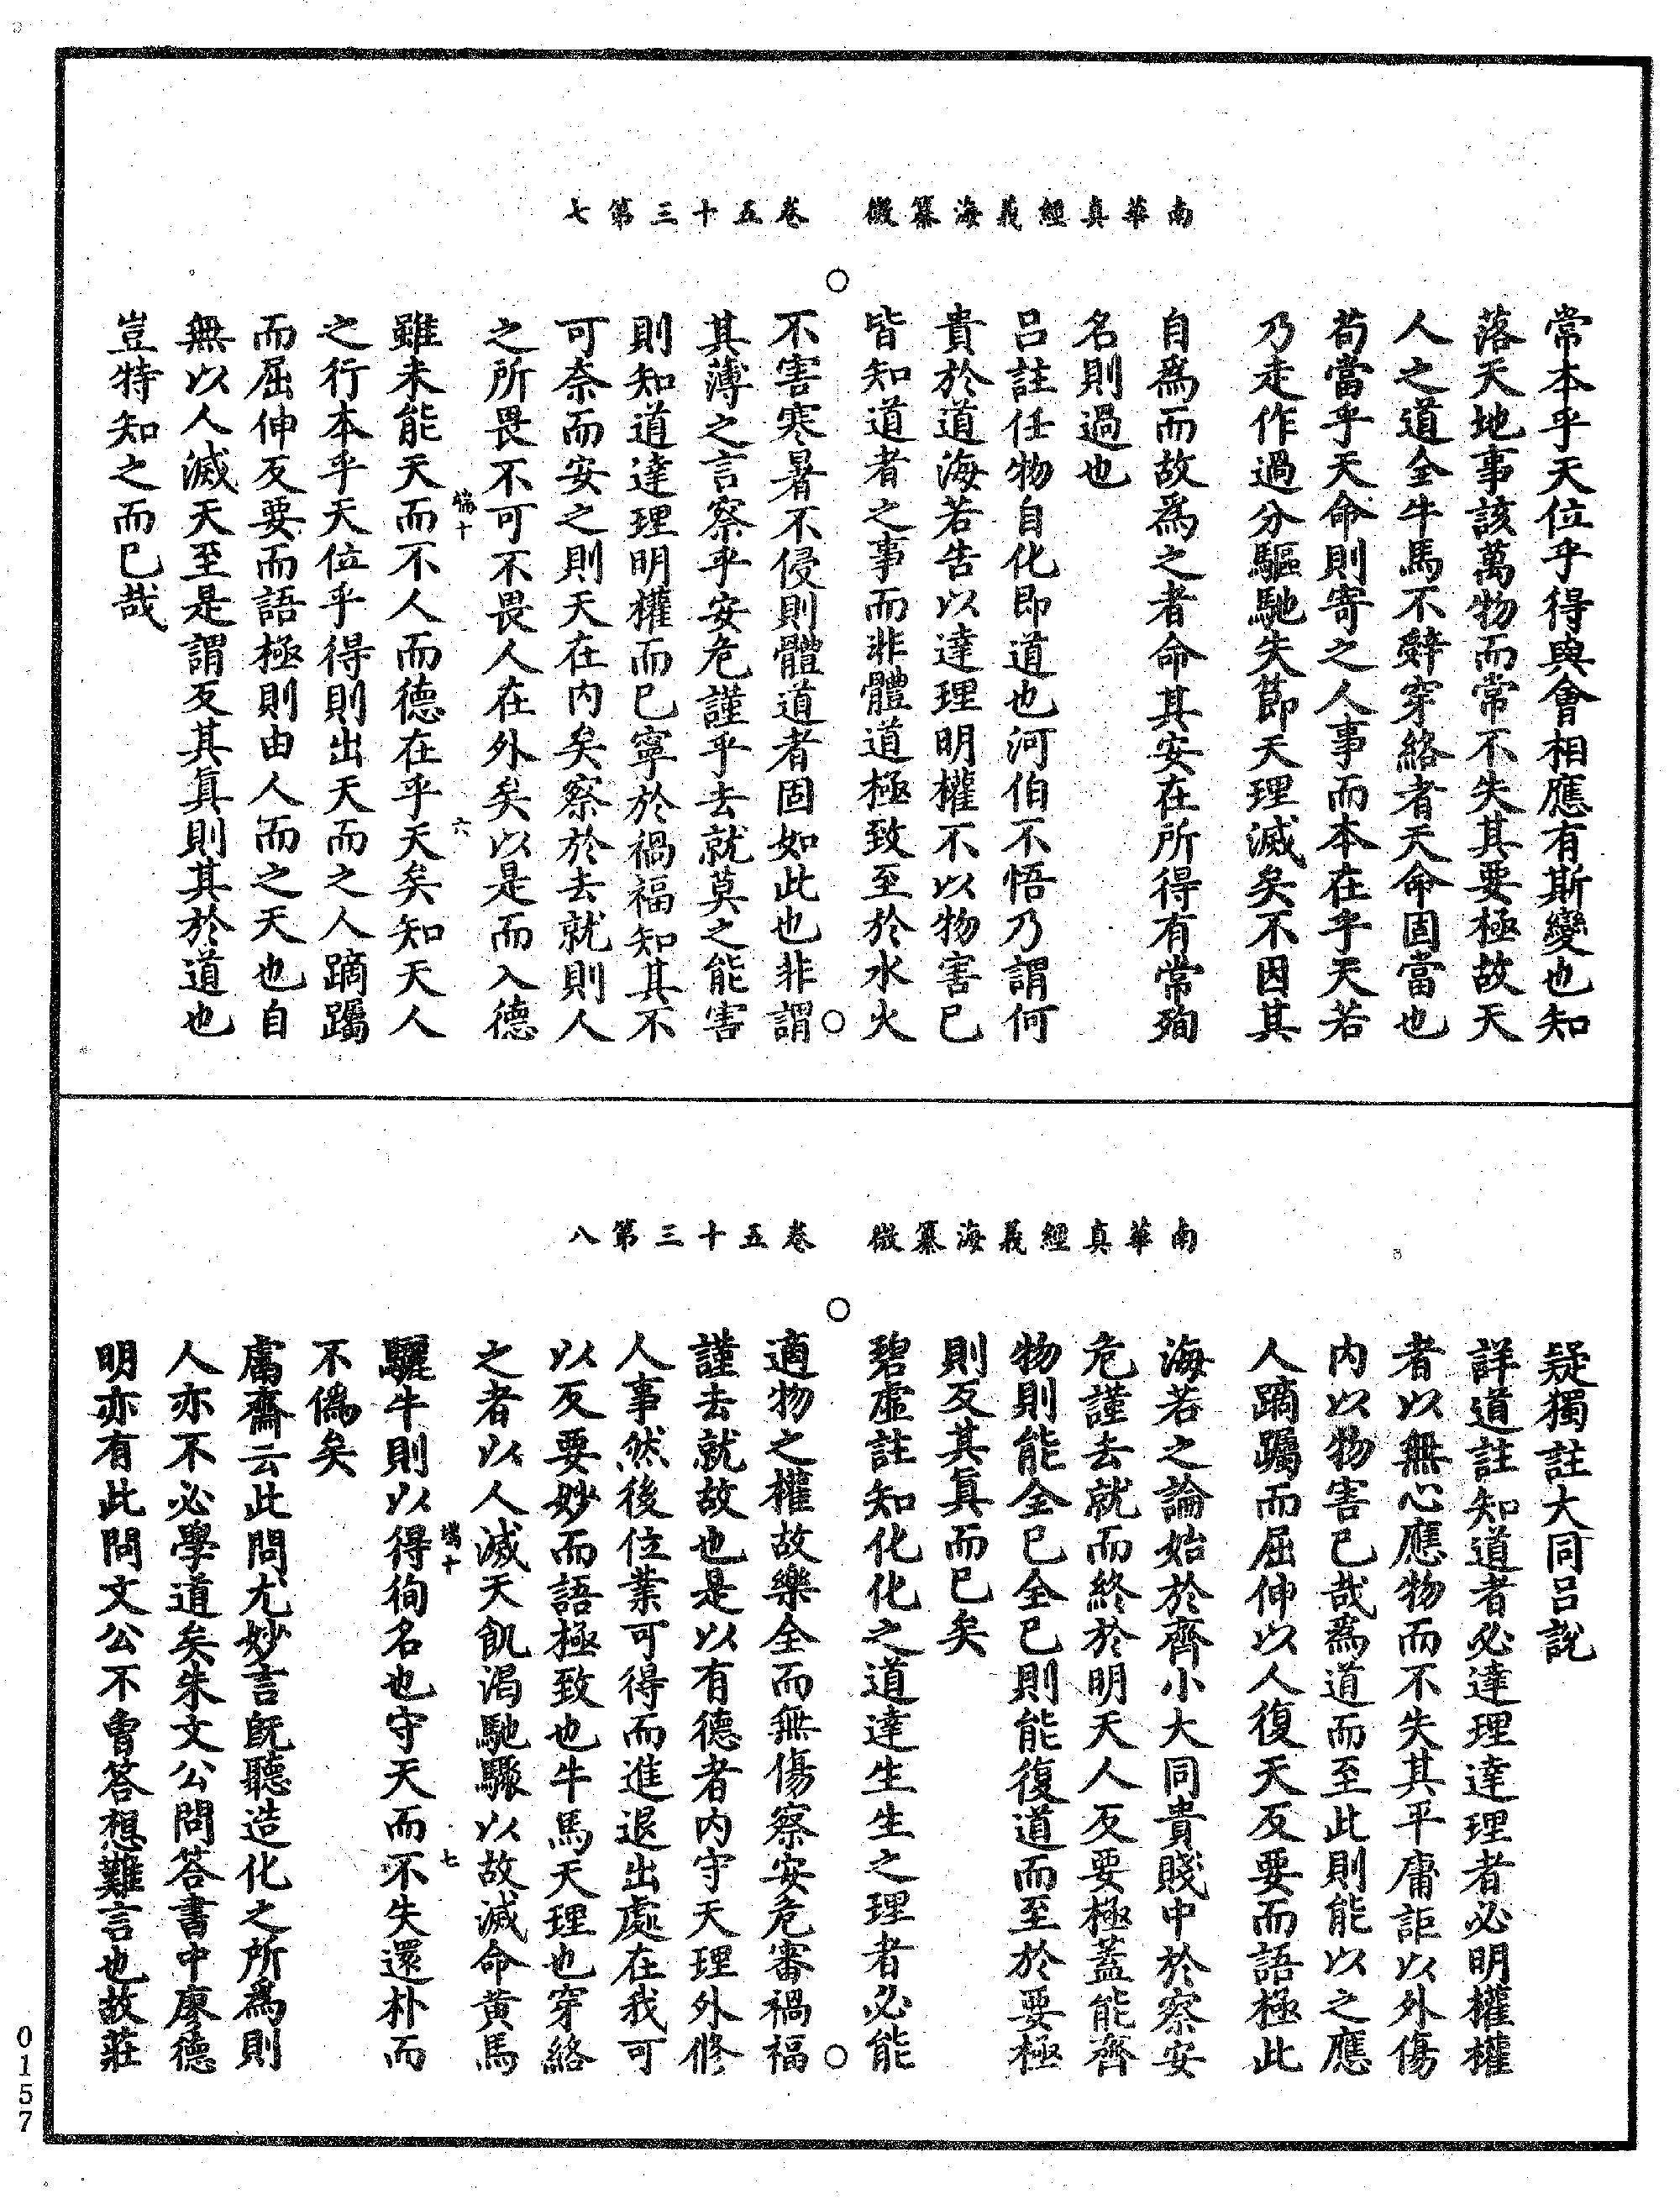 南華真經義海纂微　卷五十三第七
常本乎天位乎得與會相應有斯變也知
落天地事該萬物而常不失其要極故天
人之道全牛馬不辭穿絡者天命固當也
苟當乎天命則寄之人事而本在乎天若
乃走作過分驅馳失節天理滅矣不因其
自爲而故爲之者命其安在所得有常殉
名則過也
呂註任物自化即道也河伯不悟乃謂何
貴於道海若告以達理明權不以物害已
皆知道者之事而非體道極致至於水火
不害寒暑不侵則體道者固如此也非謂
其薄之言察乎安危謹乎去就莫之能害
則知道達理明權而已寧於禍福知其不
可奈而安之則天在内矣察於去就則人
之所畏不可不畏人在外矣以是而入德
端十　六
雖未能天而不人而德在乎天矣知天人
之行本乎天位乎得則出天而之人蹢躅
而屈伸反要而語極則由人而之天也自
無以人滅天至是謂反其真則其於道也
豈特知之而已哉
南華真經義海纂微　卷五十三第八
疑獨註大同呂說
詳道註知道者必達理達理者必明權權
者以無心應物而不失其平庸詎以外傷
内以物害已哉爲道而至此則能以之應
人蹢躅而屈伸以人復天反要而語極此
海若之論始於齊小大同貴賤中於察安
危謹去就而終於明天人反要極蓋能齊
物則能全已全已則能復道而至於要極
則反其真而已矣
碧虛註知化化之道達生生之理者必能
適物之權故樂全而無傷察安危審禍福
謹去就故也是以有德者内守天理外修
人事然後位業可得而進退出處在我可
以反要妙而語極致也牛馬天理也穿絡
之者以人滅天飢渴馳驟以故滅命黄馬
端十　七
驪牛則以得徇名也守天而不失還朴而
不僞矣
鬳齋云此問尤妙言旣聽造化之所爲則
人亦不必學道矣朱文公問答書中廖德
明亦有此問文公不曾答想難言也故莊
0157